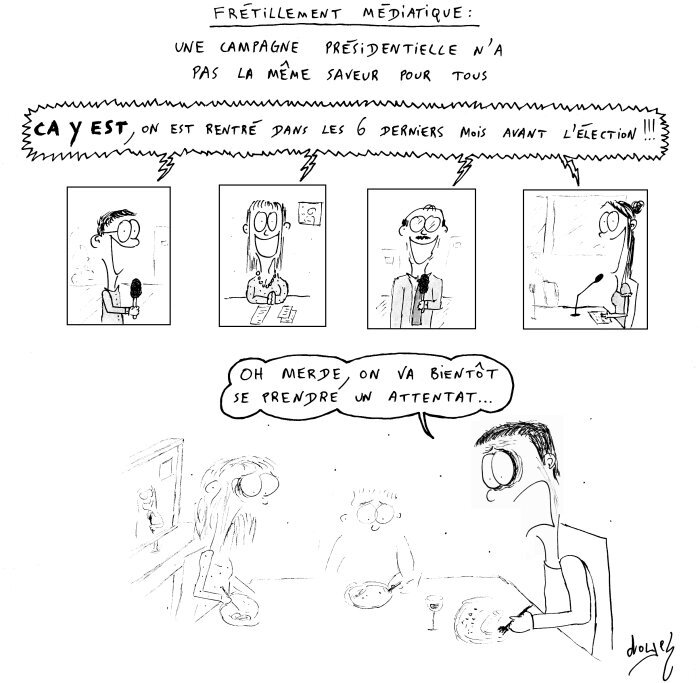 FRÉTILLEMENT MÉDIATIQUE:
UNE CAMPAGNE PRÉSIDENTIELLE N'A
PAS LA MÊME SAVEUR POUR TOUS
CA Y EST, ON EST RENTRÉ DANS LES 6 DERNIERS MOIS AVANT L'ÉLECTION !!!
OH MERDE, ON VA BIENTÔT
SE PRENDRE UN ATTENTAT...